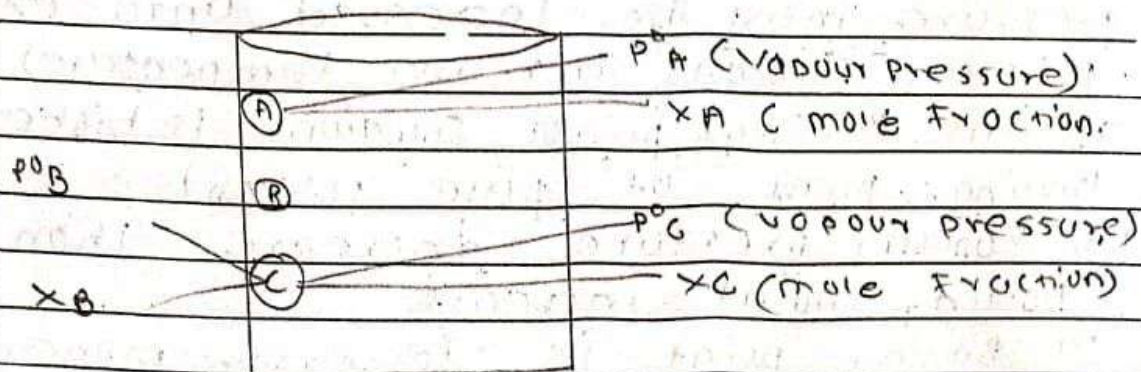 P⁰A (vapour pressure).
A
XA ( mole fraction.
P⁰B
B
P⁰C (vapour pressure)
C
XB
XC (mole fraction)